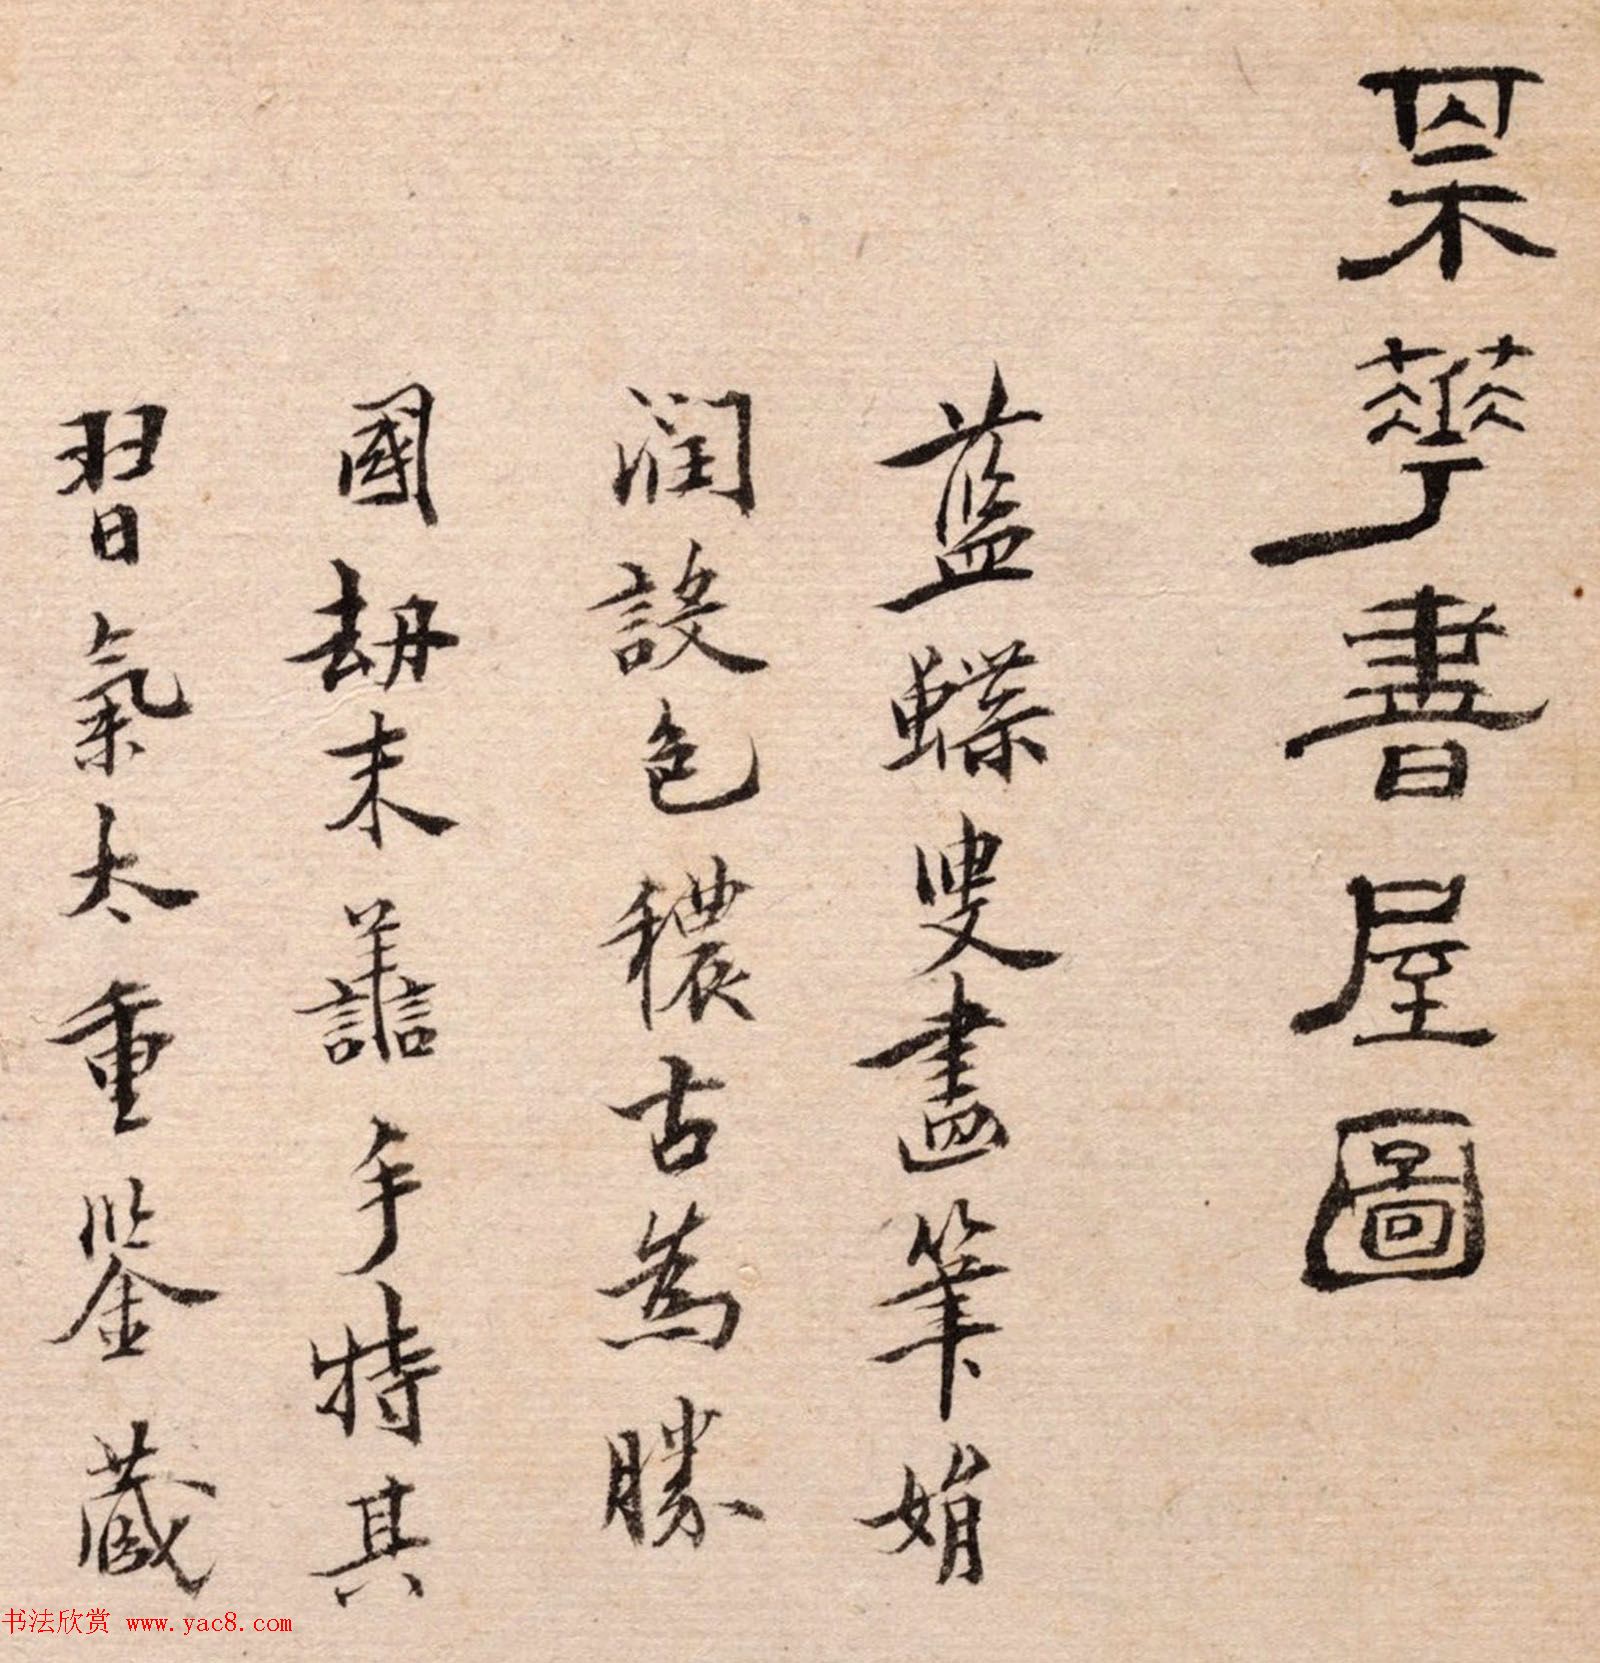 華書屋圖
藍蝶叟畫筆娟
潤設色穠古為勝
國刧末譱手特其
習氣太重鑒藏
书法欣赏 www.yac8.com